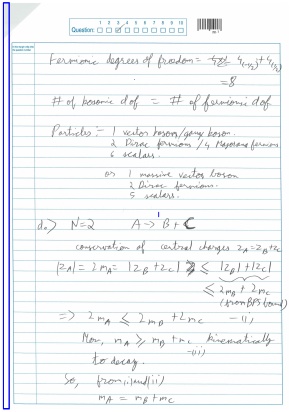 Question: 1 2 3 4 5 6 7 8 9 10
Fermionic degrees of freedom = 4(-1/2) + 4(1/2)
= 8
# of bosonic dof = # of fermionic dof
Particles :- 1 vector boson/gauge boson.
2 Dirac fermions / 4 Majorana fermions
6 scalars.
or 1 massive vector boson
2 Dirac fermions.
5 scalars.
d.) N=2 A → B + C
conservation of central charges Z_A = Z_B + Z_C
|Z_A| = 2m_A = |Z_B + Z_C| ≤ |Z_B| + |Z_C|
≤ 2m_B + 2m_C
(from BPS bound)
⇒ 2m_A ≤ 2m_B + 2m_C -(i)
Now, m_A ≥ m_B + m_C kinematically
-(ii)
to decay.
So, from (i) and (ii)
m_A = m_B + m_C